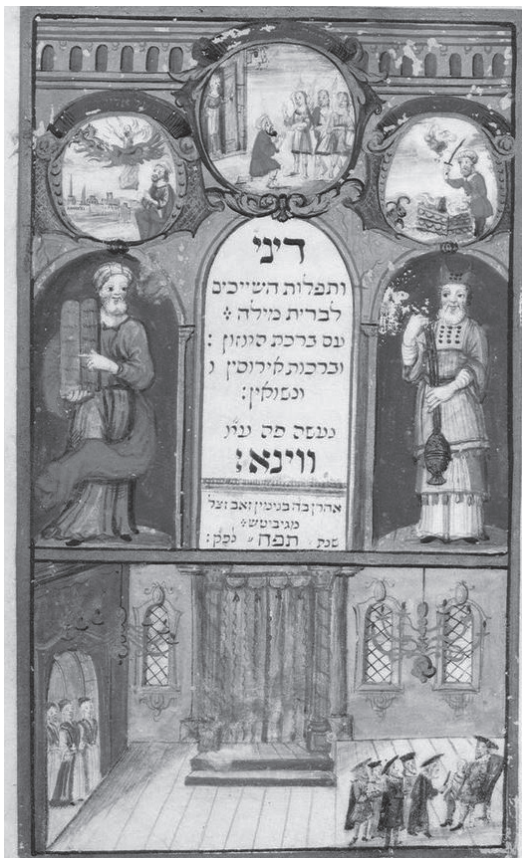 דיני
ותפלות השייכים
לברית מילה
עם ברכת המזון :
וברכות אירוסין ו
ונשואין:
נעשה פה עיר
ווינא:
אהרן בה בנימין זאב זצל
מגיביטש
שנת תפח לפק: